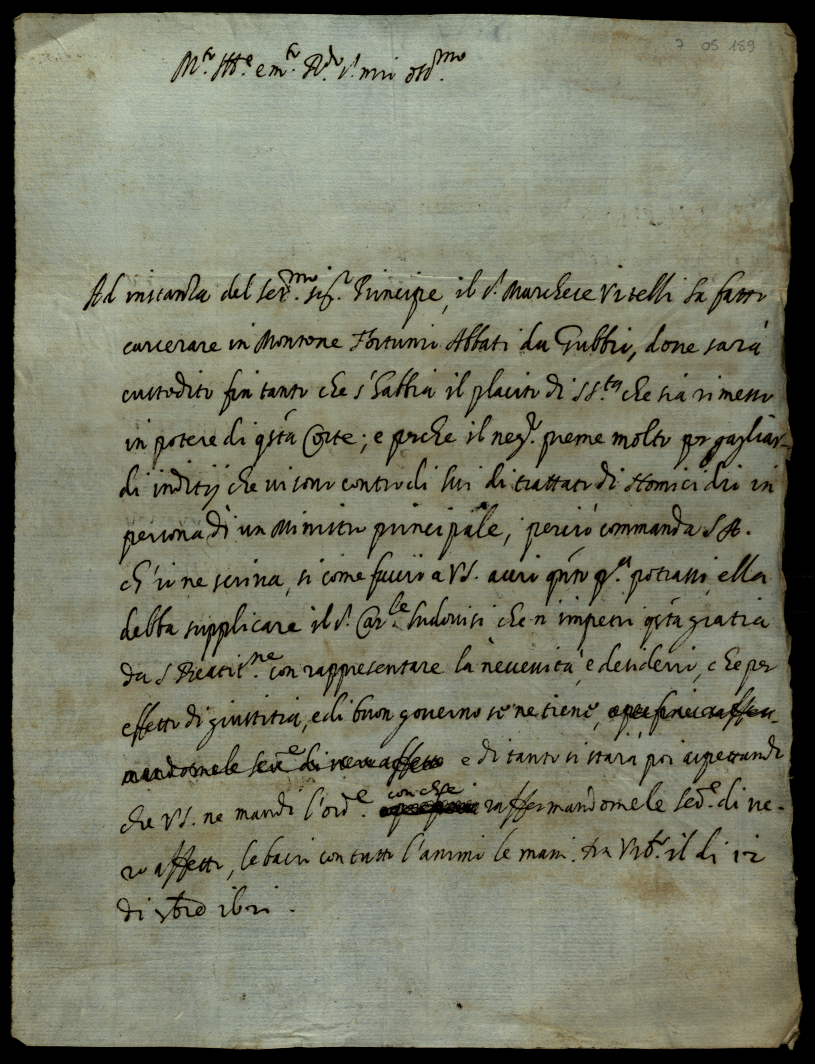 7 05 189
M.to Ill.e e m.to R.do s.r mio oss.mo
Ad instanza del ser.mo sig.r Principe, il s.r Marchese Vitelli ha fatto
carcerare in Montone Fortunio Abbati da Gubbio, dove sarà
custodito fin tanto che s'habbia il placito di S S.tà che sia rimesso
in potere di q'sta Corte; e perche il neg.o preme molto per gagliar-
di inditij che vi sono contro di lui di trattato di Homicidio in
persona di un Ministro principale, perciò commanda S A.
ch'io ne scriva, si come faccio a VS. acciò q'nto p.a potrassi, ella
debba supplicare il s.r Car.le Ludovisi che n'impetri q'sta gratia
da S Beatit.ne con rappresentare la necessità, e desiderio, che per
effetto di giustitia, e di buon governo se ne tiene, e per fine raffer-
mandomele ser.e di vero affetto e di tanto si starà poi aspettando
che VS. ne mandi l'ord.e con che raffermandomele ser.e di ve-
ro affetto, le bacio con tutto l'animo le mani. Da Urb.o il di 12
di